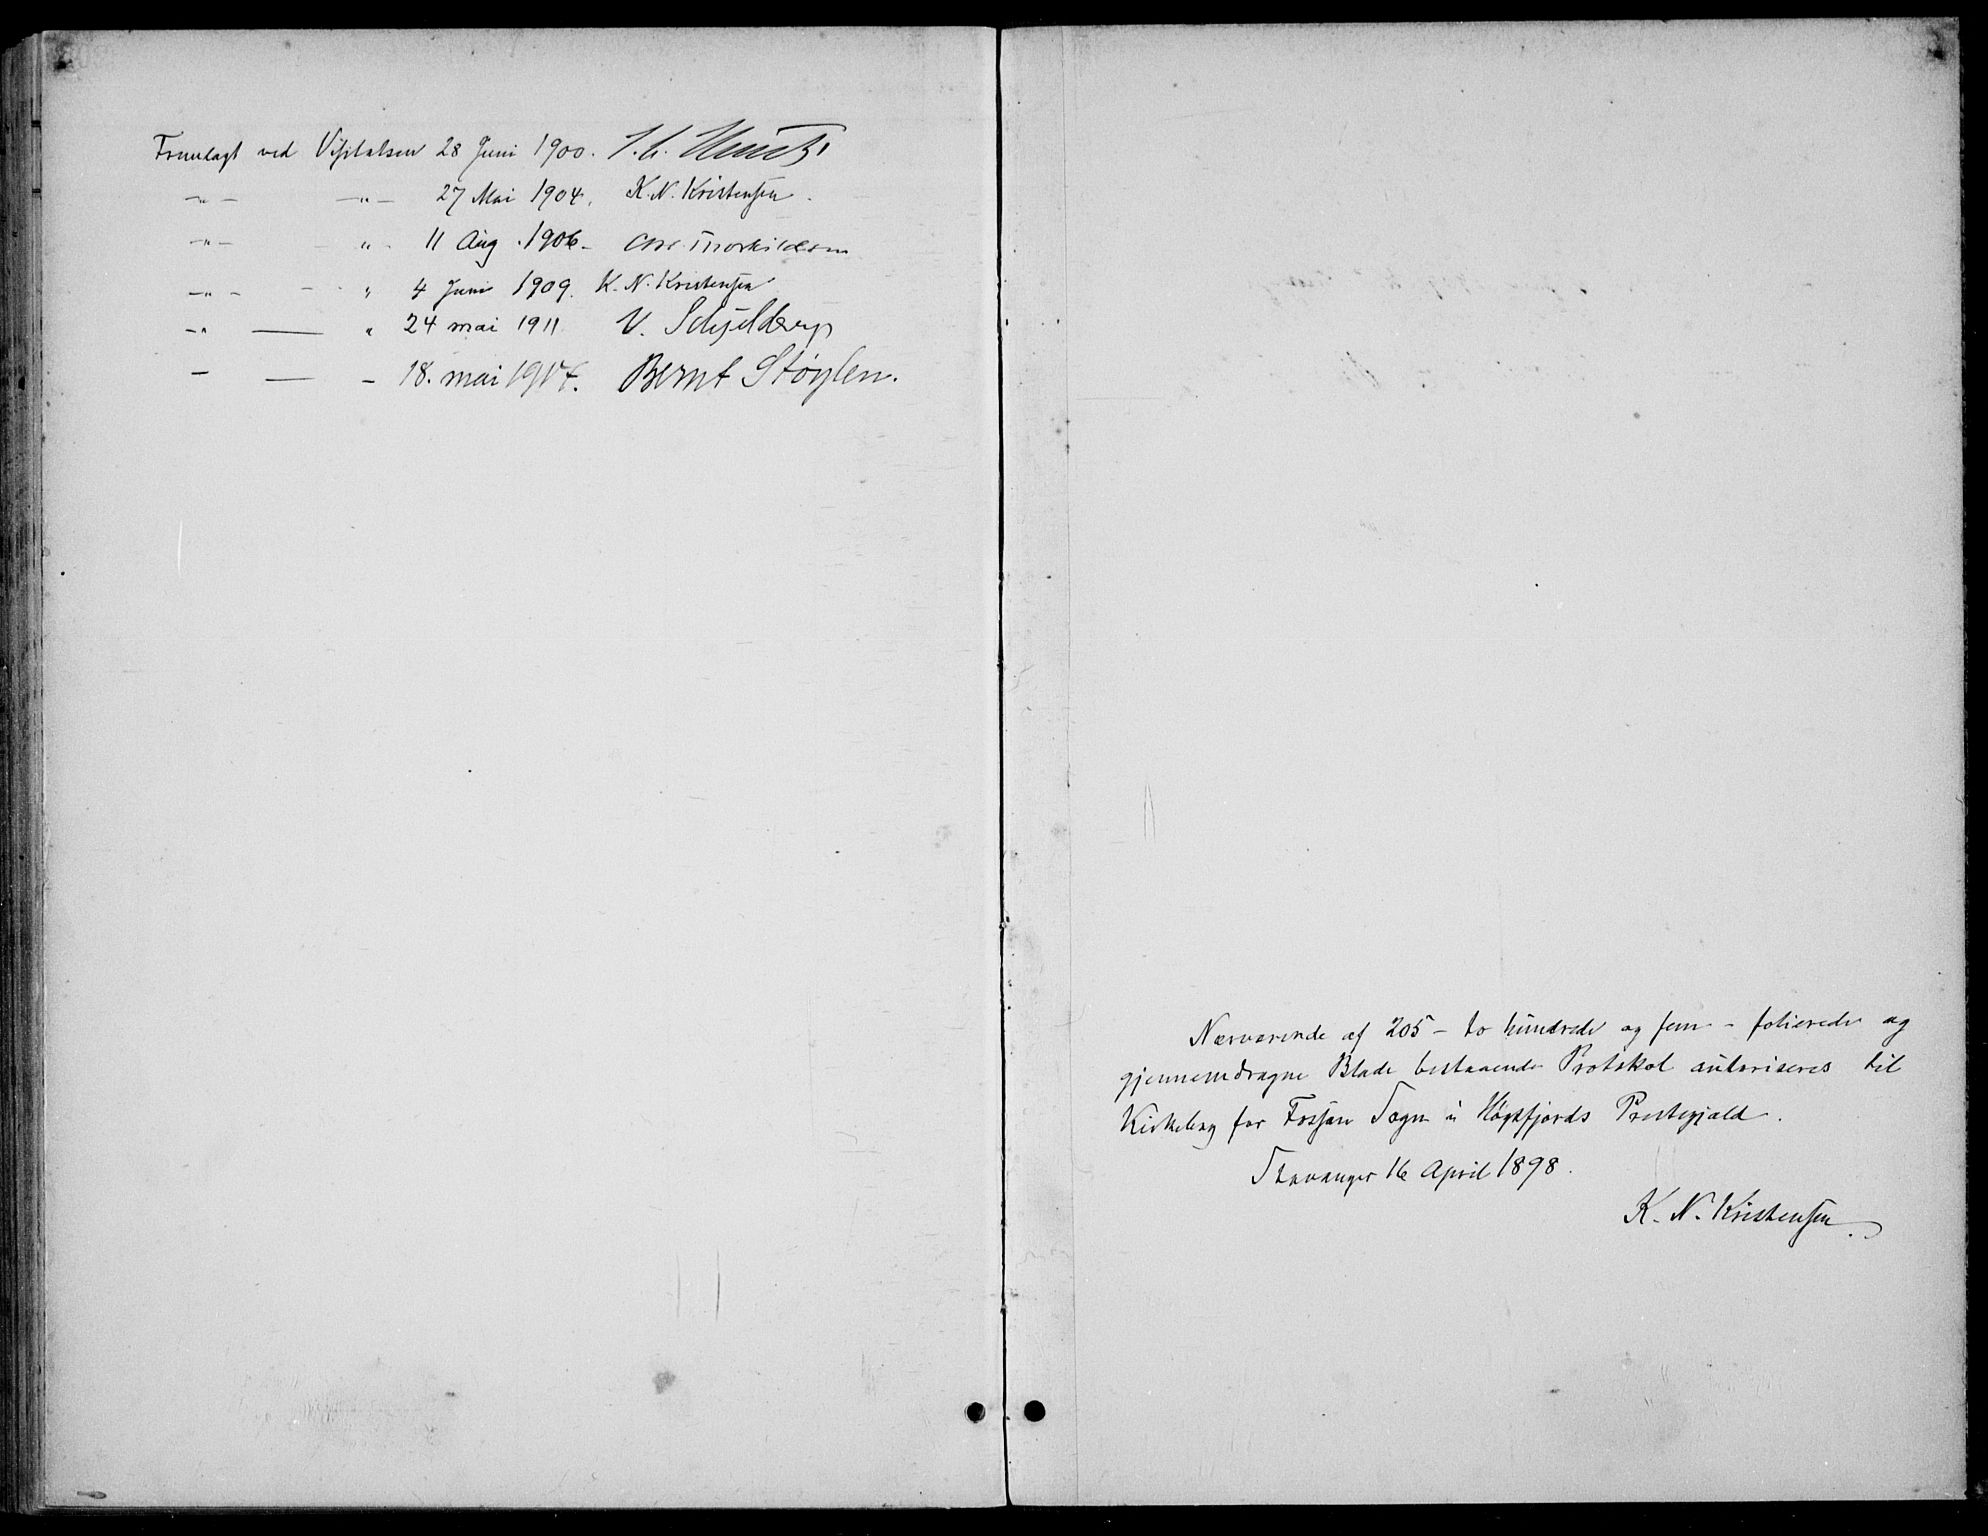 Fremlagt ved Visitatsen 28 Juni 1900.
-"- -"- 27 Mai 1904. K. N. Kristensen.
-"- " - 11 Aug. 1906 - Chr. Thorkildsen
-"- - " 4 Juni 1909. K. N. Kristensen
-" — " 24 mai 1911 V. Schjelderup
- — - 18. mai 1917. Bernt Støylen.
Nærværende af 205 - to hundrede og fem - folierede og
gjennemdragne Blade bestaaende Protokol autoriseres til
Kirkebog for Fossan Sogn i Høgsfjords Prestegjæld.
Stavanger 16 April 1898.
K. N. Kristensen.